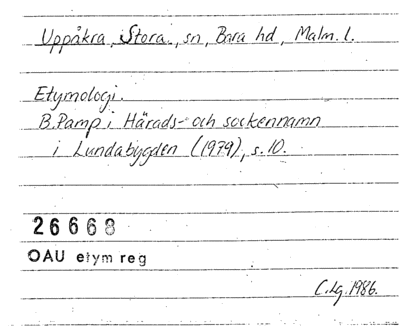 Uppåkra, Stora, sn, Bara hd, Malm. l.
Etymologi.
B. Pamp i Härads- och sockennamn
i Lundabygden (1979), s. 10.
26668
OAU etym reg
C. Lg. 1986.